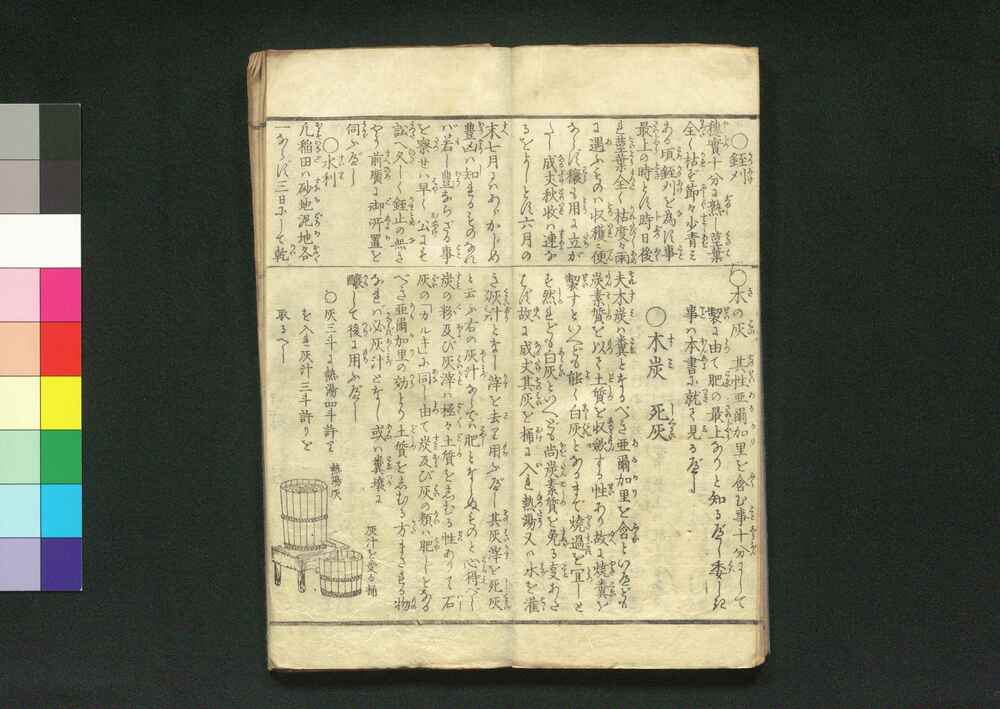 ○銍刈
穂實十分ニ熟シ莖葉
全ク枯レ節々少青ミ
ある頃銍刈を為バ事
最上の時とス時日後
れ莖葉全く枯度々雨
に遇ふものハ收穫ニ便
成丈秋收ハ速な
るをよしとス六月の
末七月にハあらかじめ
豊凶ハ知るゝものなれ
バ若し豊ならざる事
を察せバ早く公にも
訟へ久しく銍止の無き
やう前廣に御所置を
伺ふべし
○水利
凡稲田ハ砂地泥地各
一ならず三日にして乾
○木の灰 其性亜爾加里を含む事十分にして
製に由て肥の最上なりと知るべし委しき
事ハ本書に就き見るべし
○木炭 死灰
夫木炭ハ糞となるべき亜爾加里を含といへども
炭素質を以て土質を收歛する性あり故に焼糞を
製すといへども能く白灰となるまで焼過を宜しと
も然れども白灰といへども尚炭素質を免る
故に成丈其灰を桶に入れ熱湯又ハ水を灌
き灰汁となし滓を去て用ふべし其灰滓を死灰
と云ふ右の灰汁なしてハ肥となしぬものと心得べし
炭の粉及び灰滓ハ極々土質を志むる性ありて石
灰の「カルキ」に同し由て炭及び灰の類ハ肥しとなる
べき亜爾加里の効より土質を志むる方まされる物
なれバ必灰汁となし或ハ糞壌に
醸して後に用ふべし
○灰三斗に熱湯四斗許り
を入れ灰汁三斗許りを
取るべし
熱湯灰
灰汁を受る桶